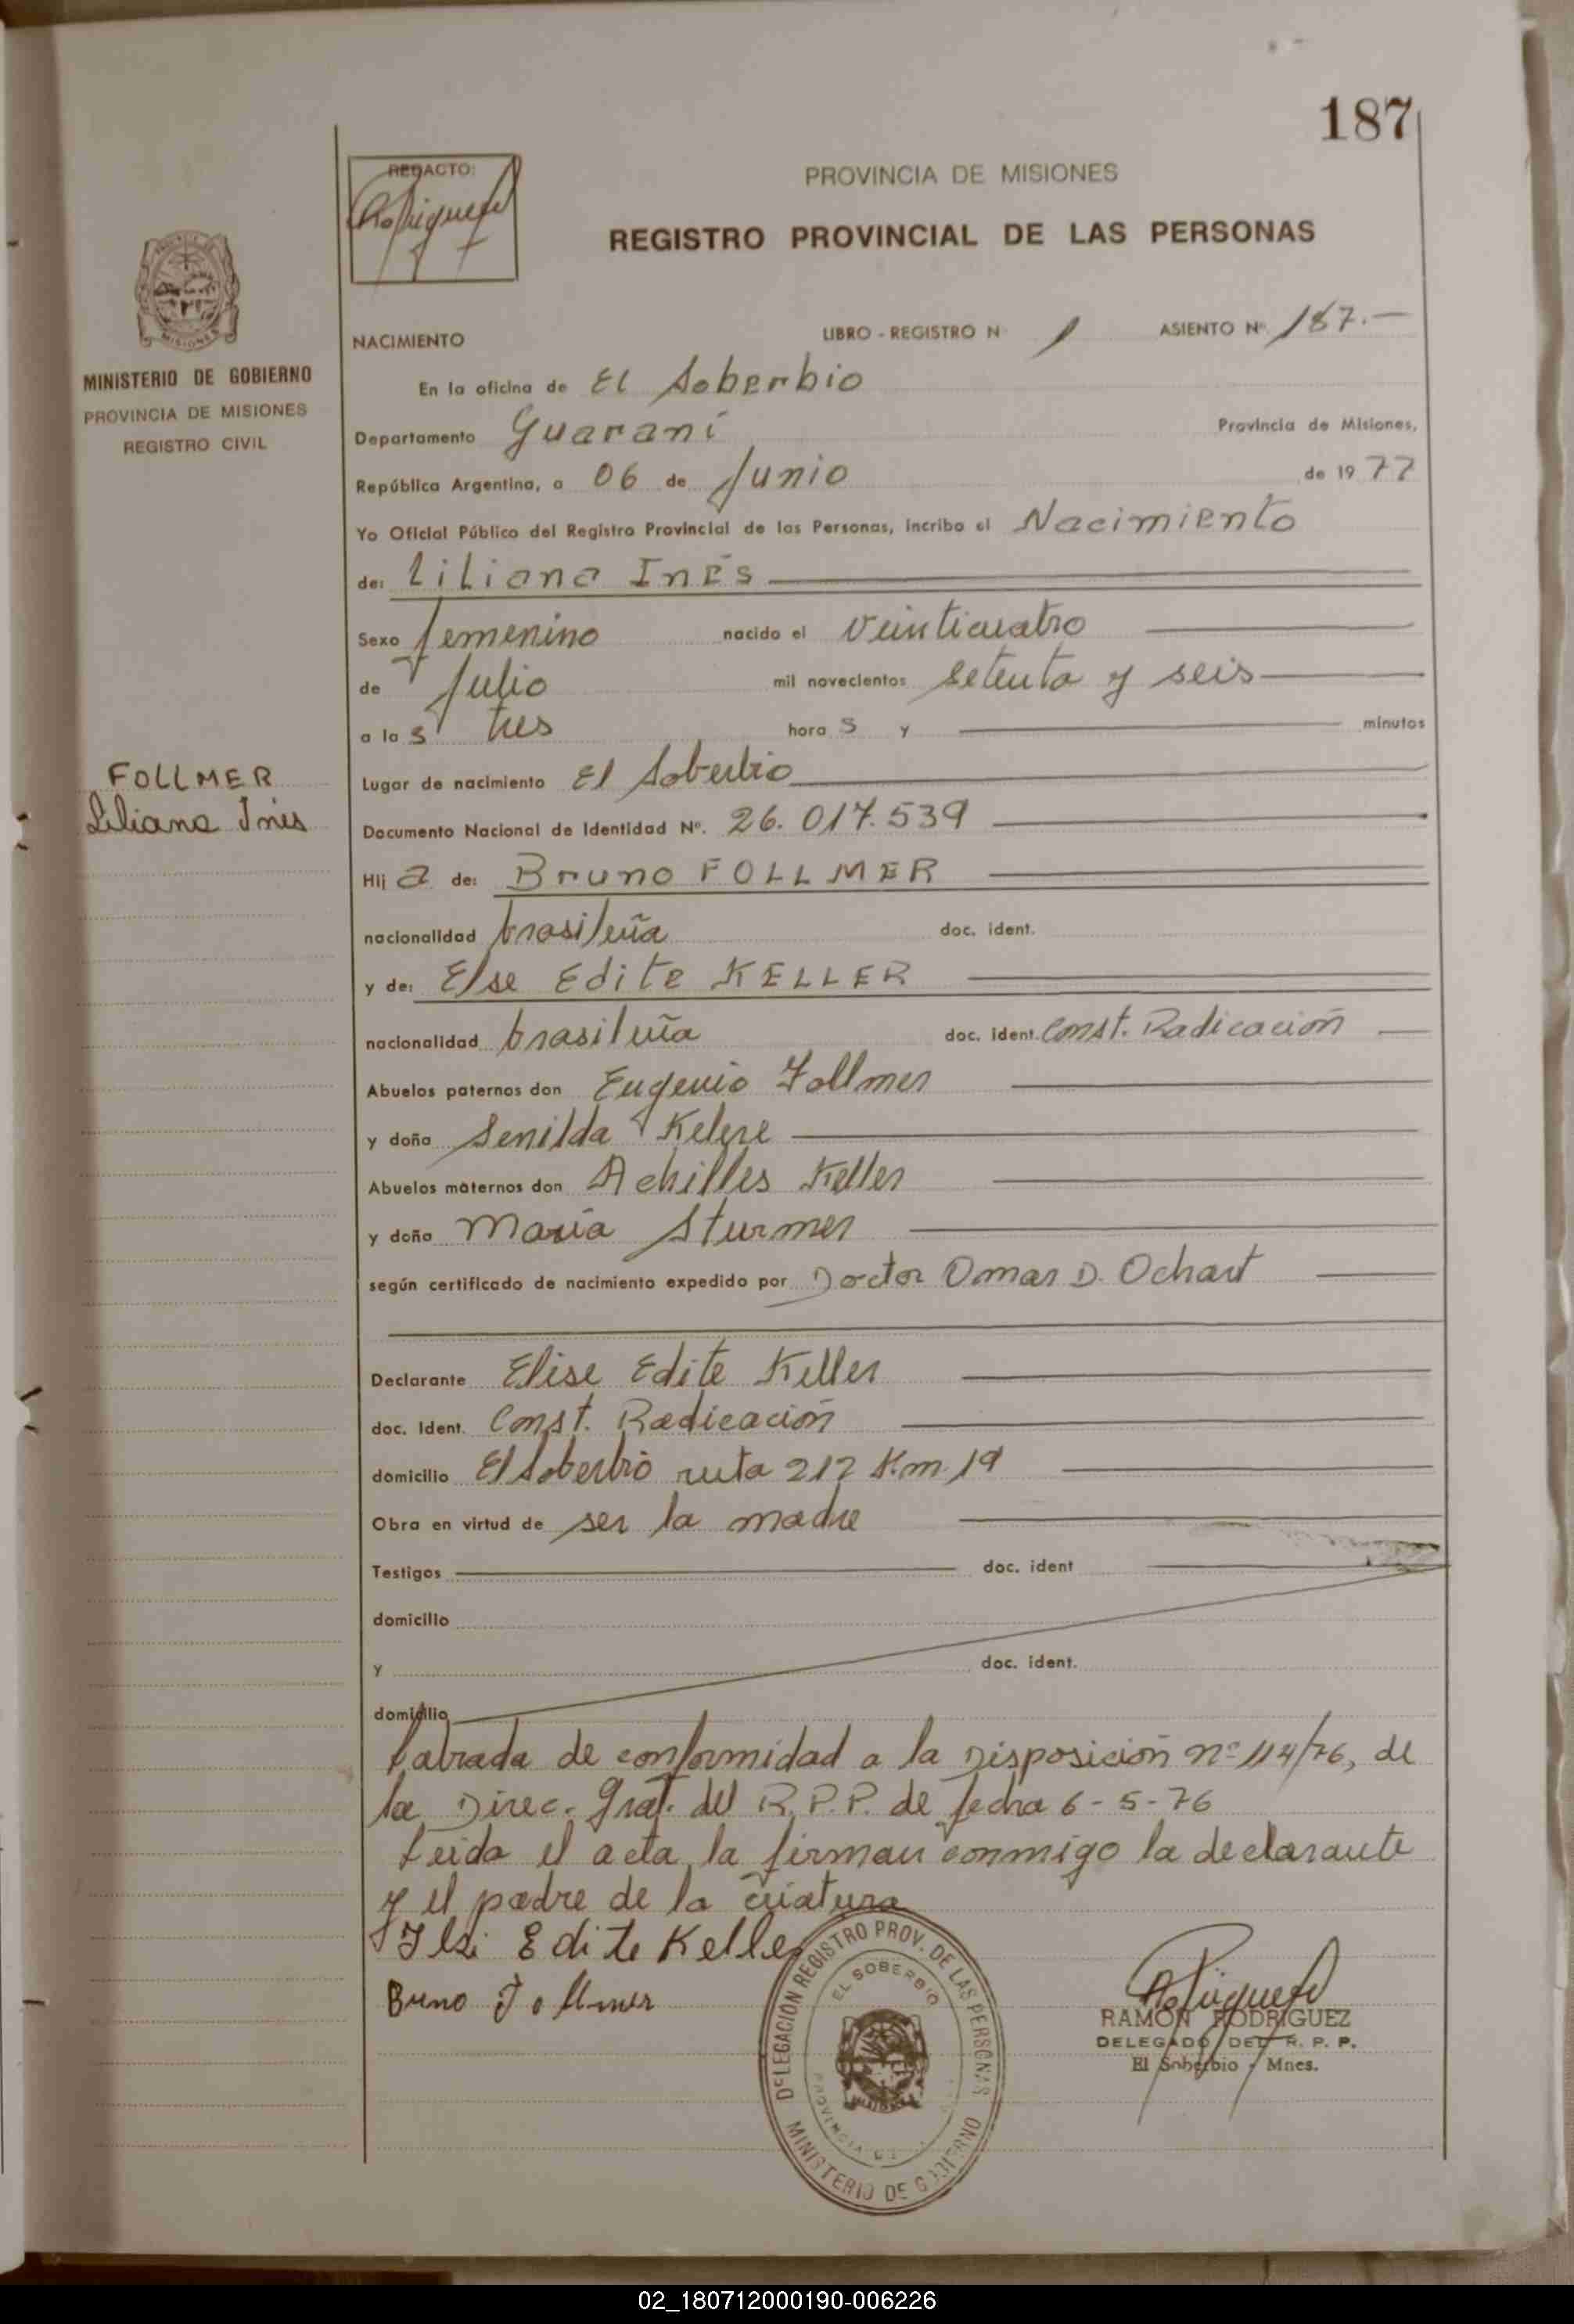 187
REDACTO:
PROVINCIA DE MISIONES
REGISTRO PROVINCIAL DE LAS PERSONAS
MISIONES
MINISTERIO DE GOBIERNO
PROVINCIA DE MISIONES
REGISTRO CIVIL
NACIMIENTO LIBRO - REGISTRO N 1 ASIENTO Nº. 187.—
En la oficina de El Soberbio
Departamento Guaraní Provincia de Misiones,
República Argentina, a 06 de Junio de 1977
Yo Oficial Público del Registro Provincial de las Personas, incribo el Nacimiento
de: Liliana Inés
Sexo femenino nacido el Veinticuatro
de Julio mil novecientos setenta y seis
a las tres horas y minutos
FOLLMER
Liliana Inés
Lugar de nacimiento El Soberbio
Documento Nacional de Identidad Nº. 26.017.539
Hija de: Bruno FOLLMER
nacionalidad brasileña doc. ident.
y de: Else Edite KELLER
nacionalidad brasileña doc. ident. Const. Radicación
Abuelos paternos don Eugenio Follmer
y doña Senilda
Abuelos maternos don Achilles Keller
y doña María Sturmer
según certificado de nacimiento expedido por Doctor Omar D. Ochart
Declarante Elise Edite Keller
doc. Ident. Const. Radicación
domicilio El Soberbio ruta 212 K.m. 19
Obra en virtud de ser la madre
Testigos doc. ident
domicilio
y doc. ident.
domicilio
Labrada de conformidad a la Disposición nº 114/76, de
la Direc. Gral. del R.P.P. de fecha 6-5-76
Leida el acta, la firman conmigo la declarante
y el padre de la criatura
Edite Keller
Bruno Follmer
DELEGACIÓN REGISTRO PROV. DE LAS PERSONAS
EL SOBERBIO
PROVINCIA DE
MINISTERIO DE GOBIERNO
RAMÓN RODRIGUEZ
DELEGADO DEL R. P. P.
El Soberbio - Mnes.
02_180712000190-006226